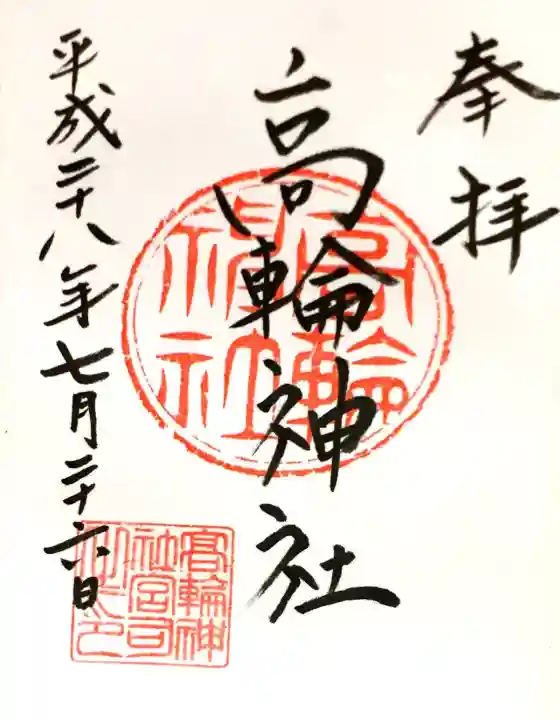 奉拝
高輪神社
平成二十八年七月二十六日
高輪神社
高輪神
社宮司